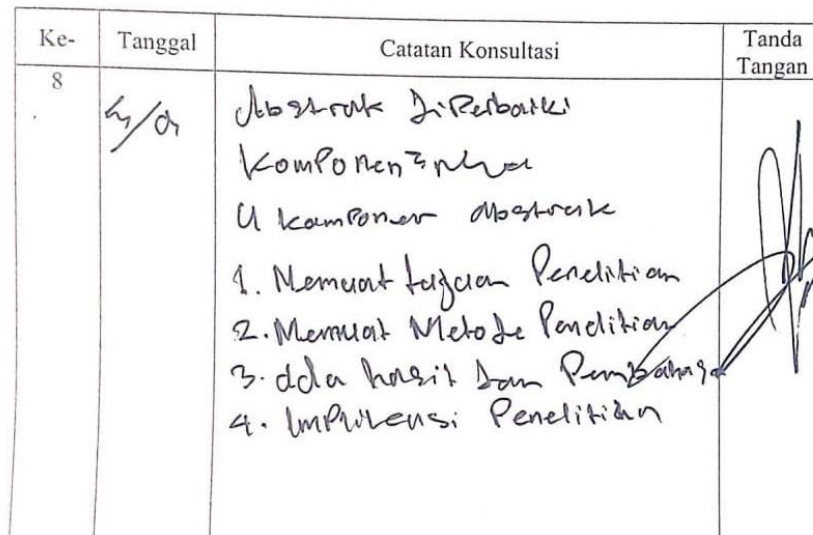 Ke- Tanggal Catatan Konsultasi Tanda Tangan
8
Abstrak DiPerbaiki
KomPonen²nya
4 komPonen Abstrak
1. Memuat tujuan Penelitian
2. Memuat Metode Penelitian
3. Ada hasil dan Pembahasa
4. ImPlikasi Penelitian